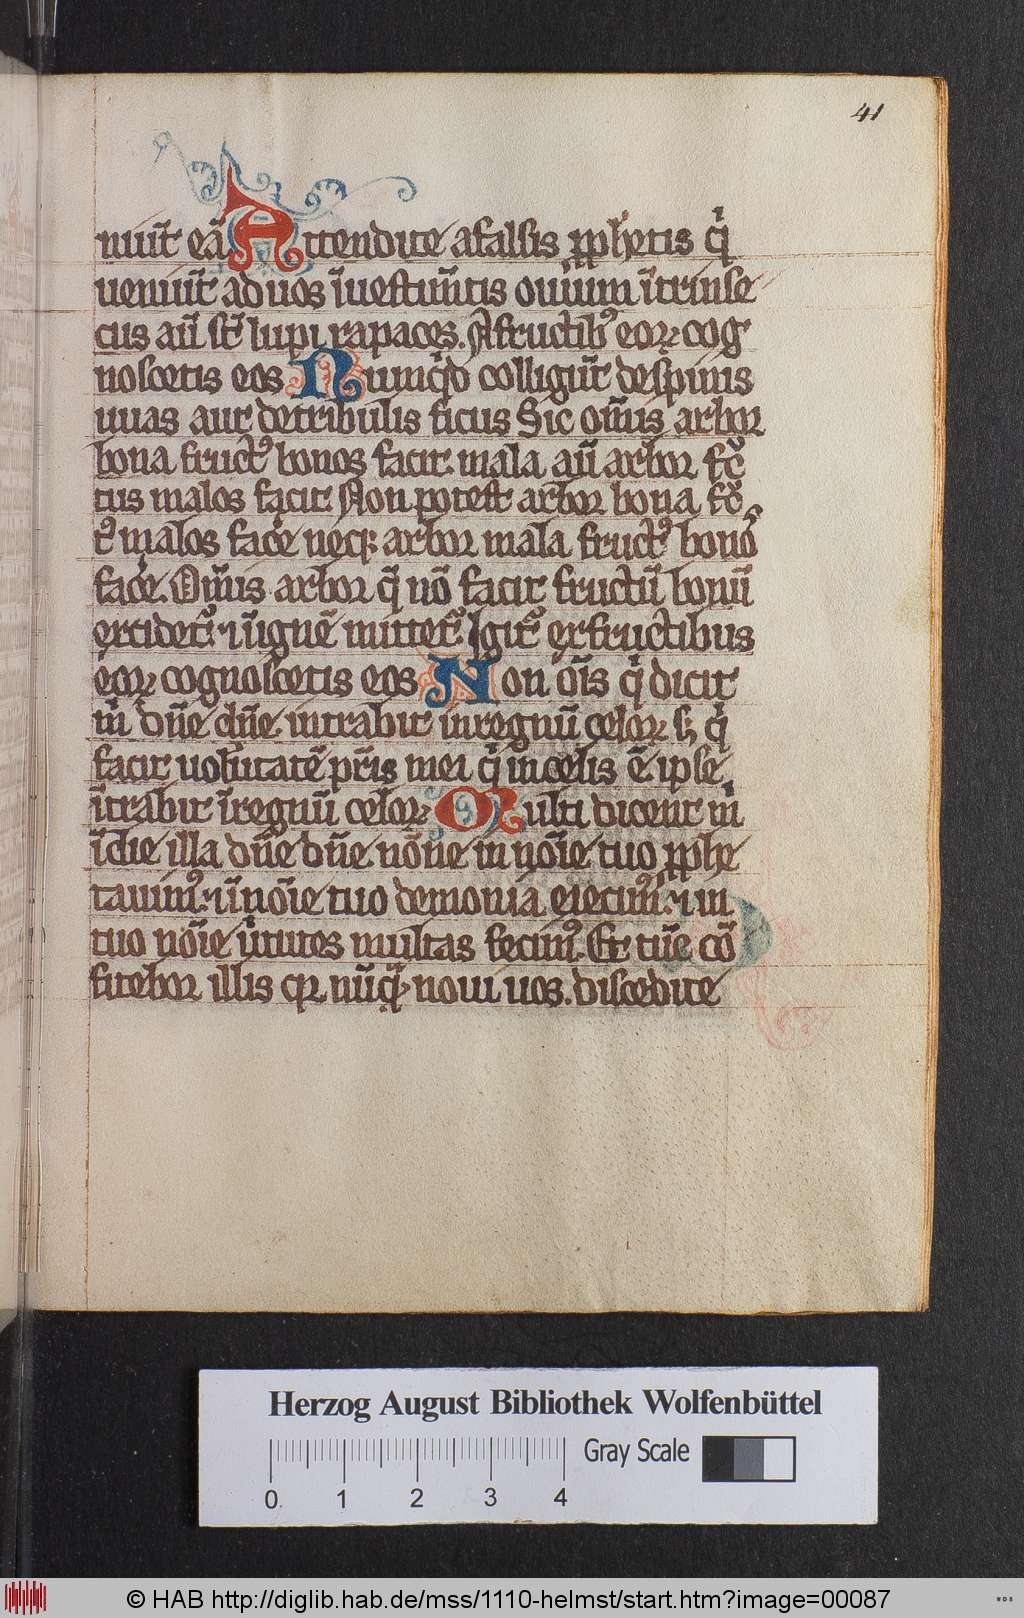 41
niūt eā Attendite afalsis ꝓphetis q̇
ueniūt ad uos ī uestimētis ouium ītrinse
cus aū sūt lupi rapaces. A fructib⁹ eoꝝ cog
noscetis eos Nunq̇d colligūt despinis
uuas aut detribulis ficus Sic om̄is arbor
bona fruct⁹ bonos facit. mala aū arbor fᷓc
tus malos facit. Non potest arbor bona fᷓc
t⁹ malos facẽ neqꝫ arbor mala fruct⁹ bonos
facẽ. Om̄is arbor q̄ nō facit fructū bonū
excidet᷑. ⁊ ī ignē mittet᷑. Igit᷑ exfructibus
eoꝝ cognoscetis eos Non oīs q̇ dicit
ṁ dn̄e dn̄e. intrabit inregnū celoꝝ. sꝫ q̇
facit uolūtatē pr̄is mei q̇ incelis ē ipse
ītrabit īregnū celoꝝ Multi dicent ṁ
īdie illa dn̄e dn̄e nōne in noīe tuo ꝓphe
tauim⁹. ⁊ ī noīe tuo demonia eiecim⁹. ⁊ in
tuo noīe v̇tutes multas fecim⁹. Et tūc cō
fitebor illis qꝛ nūqᷓ noui uos. discedite
Herzog August Bibliothek Wolfenbüttel
Gray Scale
0 1 2 3 4
© HAB http://diglib.hab.de/mss/1110-helmst/start.htm?image=00087